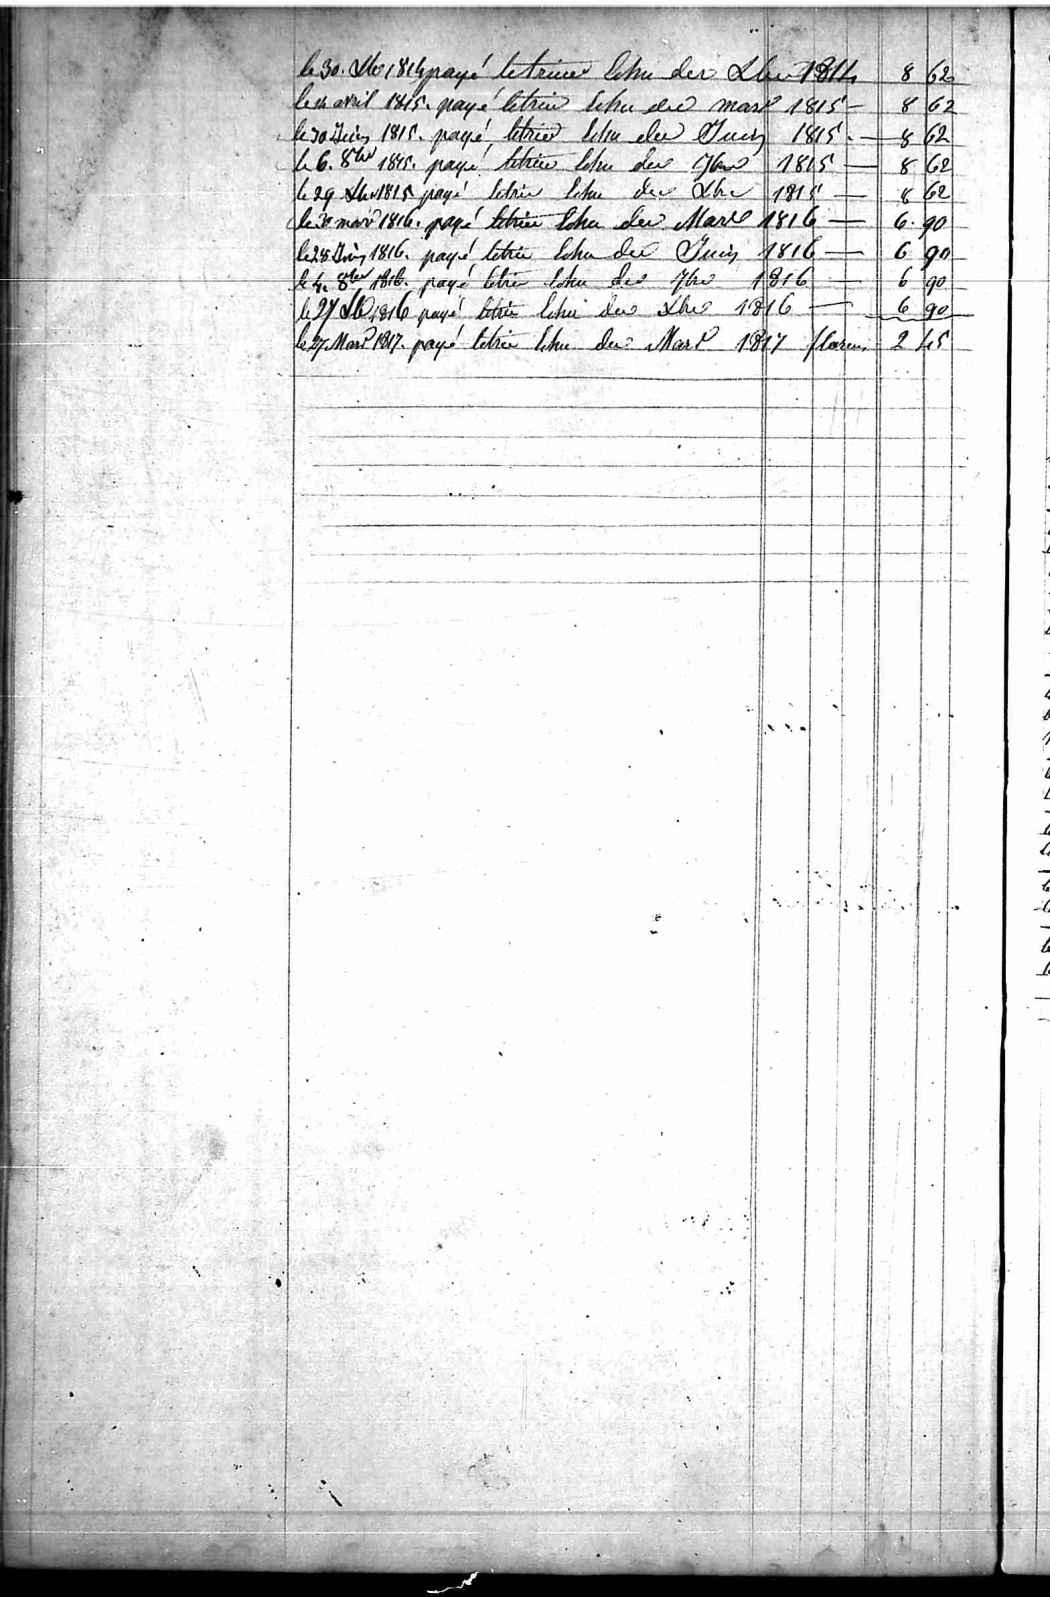 le 30. Xbre 1814 payé letrimes Echu der Xbre 1814 8 62
le 4 avril 1815. payé letrim Echu der mars 1815 — 8 62
le 30 Juin 1815. payé letrim Echu der Juin 1815 — 8 62
le 6. 8bre 1815. payé letrim Echu der 7bre 1815 — 8 62
le 29 Xbre 1815 payé letrim Echu der Xbre 1815 — 8 62
le 30 mars 1816. payé letrim Echu der Mars 1816 — 6. 90
le 28 Juin 1816. payé letrim Echu der Juin 1816 — 6 90
le 4. 8bre 1816. payé letrim Echu der 7bre 1816 — 6 90
le 27 Xbre 1816 payé letrim Echu der Xbre 1816 — 6 90
le 27 Mars 1817. payé letrim Echu der Mars 1817 florins 2 45